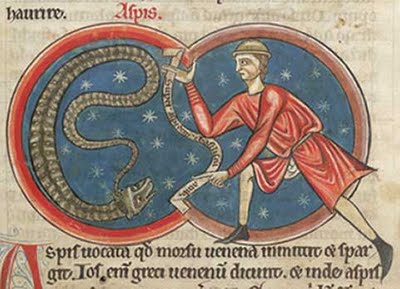 haurire. Aspis.
Aspis uocata qd morsu uenena inmittit & spar
git. Ios. em greci uenenū dicunt. & inde aspis